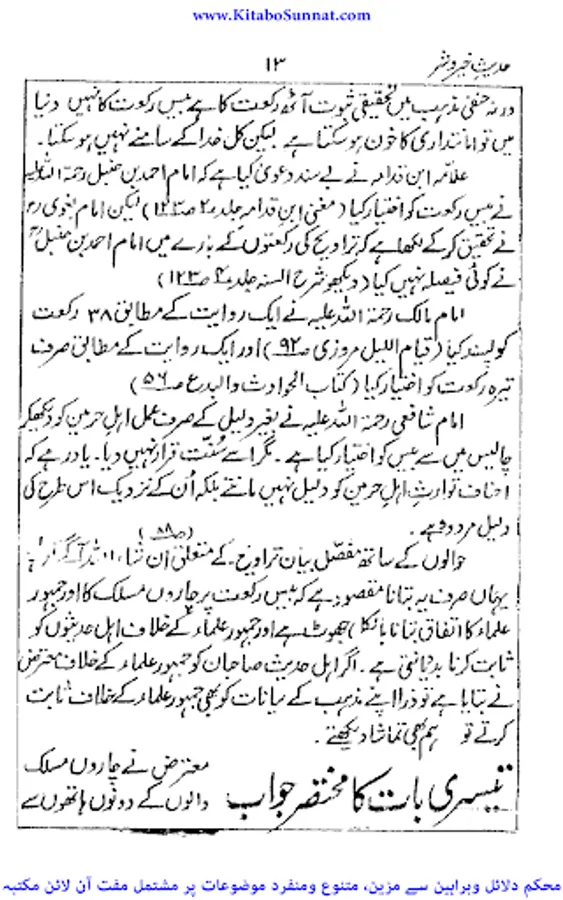 www.KitaboSunnat.com
حدیثِ خیر و شر
۱۳
ورنہ حنفی مذہب میں تحقیقی ثبوت آٹھ رکعت کا ہے بیس رکعت کا نہیں دنیا
میں تو امانتداری کا خون ہو سکتا ہے لیکن کل خدا کے سامنے نہیں ہو سکتا۔
علامہ ابن قدامہ نے بے سند دعویٰ کیا ہے کہ امام احمد بن حنبل رحمۃ اللہ علیہ
نے بیس رکعت کو اختیار کیا (مغنی ابن قدامہ جلد ۲ صـ۱۲۳) لیکن امام بغوی رح
نے تحقیق کر کے لکھا ہے کہ تراویح کی رکعتوں کے بارے میں امام احمد بن حنبل رح
نے کوئی فیصلہ نہیں کیا (دیکھو شرح السنہ جلد ۴ صـ۱۲۳)
امام مالک رحمۃ اللہ علیہ نے ایک روایت کے مطابق ۳۸ رکعت
کو پسند کیا (قیام اللیل مروزی صـ۹۲) اور ایک روایت کے مطابق صرف
تیرہ رکعت کو اختیار کیا (کتاب الحوادث والبدع صـ۵۶)
امام شافعی رحمۃ اللہ علیہ نے بغیر دلیل کے صرف عمل اہل حرمین کو دیکھکر
چالیس میں سے بیس کو اختیار کیا ہے۔ مگر اسے سُنّت قرار نہیں دیا۔ یاد رہے کہ
احناف توارثِ اہلِ حرمین کو دلیل نہیں مانتے بلکہ اُن کے نزدیک اس طرح کی
دلیل مردود ہے۔
(صـ۸۸)
حوالوں کے ساتھ مفصّل بیان تراویح کے متعلق ان شاء اللہ آگے آرہا ہے
یہاں صرف یہ بتانا مقصود ہے کہ بیس رکعت پر چاروں مسلک کا اور جمہور
علماء کا اتفاق بتانا بالکل جھوٹ ہے اور جمہور علماء کے خلاف اہل حدیثوں کو
ثابت کرنا بددیانتی ہے۔ اگر اہل حدیث صاحبان کو جمہور علماء کے خلاف معترض
نے بتایا ہے تو ذرا اپنے مذہب کے بیانات کو بھی جمہور علماء کے خلاف ثابت
کرتے تو ہم بھی تماشا دیکھتے۔
تیسری بات کا مختصر جواب
معترض نے چاروں مسلک
والوں کے دونوں ہاتھوں سے
محکم دلائل وبراہین سے مزین، متنوع ومنفرد موضوعات پر مشتمل مفت آن لائن مکتبہ